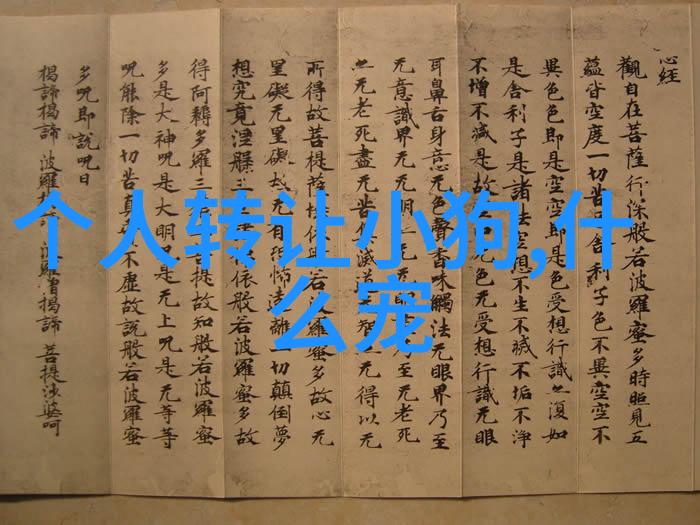 个人转让小狗,什
么宠
心经
觀自在菩薩行深般若波羅蜜多時照見五
蘊皆空度一切苦舍利子色不異空空不
異色色即是空空即是色受想行識亦復如
是舍利子是諸法空想不生不滅不垢不淨
不增不減是故无色无受想行識无眼
耳鼻舌身意无色聲香味觸法无眼界乃至
无意識界无无明无乃至无老死
亦无老死盡无苦滅无得以无
所得故菩提薩依若波羅蜜多故心无
罣礙无罣礙故无有恐怖遠離一切顛倒夢
想究竟涅槃三依般若波羅蜜多故
得阿耨多羅三菩提故知般若波羅蜜
多是大神呪是大明呪是无上呪是无等等
呪能除一切苦真不虛故說般若波羅蜜
多呪即說呪曰
揭諦揭諦 波羅揭諦 波羅僧揭諦 菩提沙婆呵